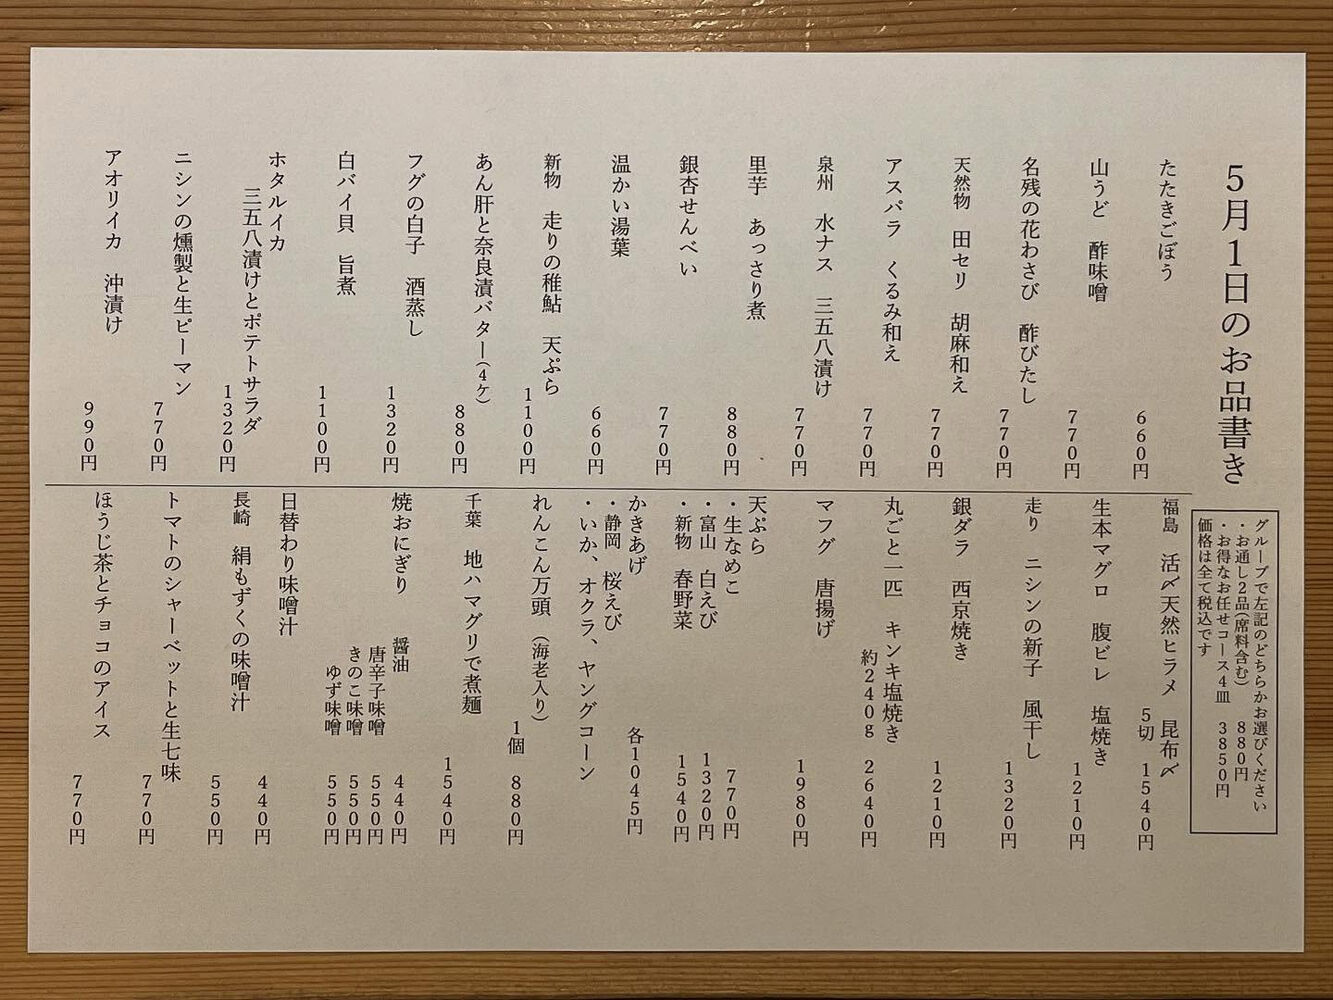 5月1日のお品書き
グループで左記のどちらかお選びください
・お通し2品(席料含む) 880円
・お得なお任せコース4皿 3850円
価格は全て税込です
たたきごぼう 660円
山うど 酢味噌 770円
名残の花わさび 酢びたし 770円
天然物 田セリ 胡麻和え 770円
アスパラ くるみ和え 770円
泉州 水ナス 三五八漬け 770円
里芋 あっさり煮 880円
銀杏せんべい 770円
温かい湯葉 660円
新物 走りの稚鮎 天ぷら 1100円
あん肝と奈良漬バター(4ケ) 880円
フグの白子 酒蒸し 1320円
白バイ貝 旨煮 1100円
ホタルイカ
三五八漬けとポテトサラダ 1320円
ニシンの燻製と生ピーマン 770円
アオリイカ 沖漬け 990円
福島 活〆天然ヒラメ 昆布〆
5切 1540円
生本マグロ 腹ビレ 塩焼き 1210円
走り ニシンの新子 風干し 1320円
銀ダラ 西京焼き 1210円
丸ごと一匹 キンキ塩焼き
約240g 2640円
マフグ 唐揚げ 1980円
天ぷら
・生なめこ 770円
・富山 白えび 1320円
・新物 春野菜 1540円
かきあげ 各1045円
・静岡 桜えび
・いか、オクラ、ヤングコーン
れんこん万頭 (海老入り)
1個 880円
千葉 地ハマグリで煮麺 1540円
焼おにぎり 醤油 440円
唐辛子味噌 550円
きのこ味噌 550円
ゆず味噌 550円
日替わり味噌汁 440円
長崎 絹もずくの味噌汁 550円
トマトのシャーベットと生七味 770円
ほうじ茶とチョコのアイス 770円